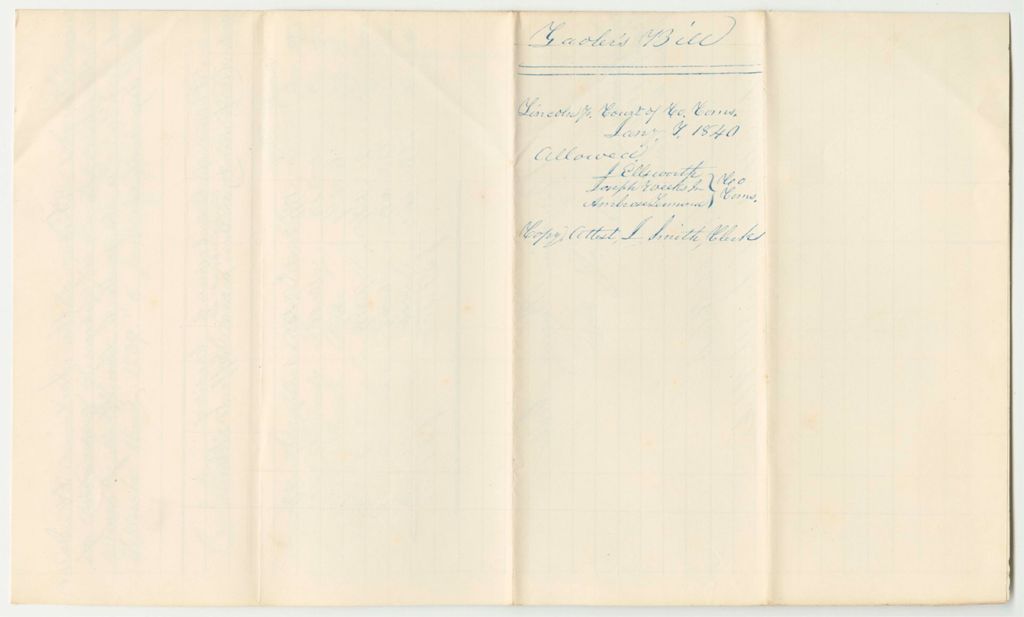 Gaoler's Bill
Lincoln ss. Court of Co. Coms.
Jany. T. 1840
Allowed
J Ellsworth
Joseph Weeks Jr
Ambrose
Co
Coms.
Copy, Attest, J. Smith, Clerk